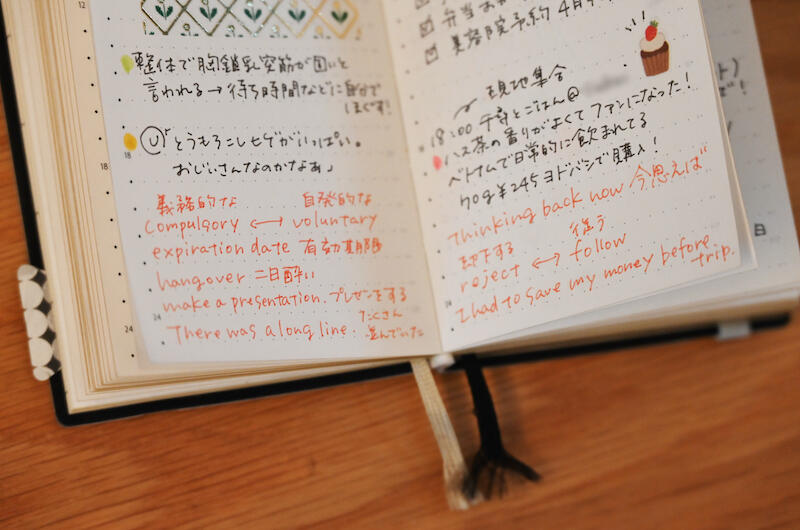 整体で胸鎖乳突筋が固いと
言われる→待ち時間などに自分で
ほぐす!
「とうもろこしヒゲがいっぱい。
おじいさんなのかなぁ」
義務的な 自発的な
compulsory ←→ voluntary
expiration date 有効期限
hangover 二日酔い
make a presentation. プレゼンをする
There was a long line. たくさん
並んでいた
12
18
24
弁当お
美容院予約 4月
現地集合
18:00 千尋とごはん@
ハス茶の香りがよくてファンになった!
ベトナムで日常的に飲まれてる
70g ¥245 ヨドバシで購入!
Thinking back now 今思えば
却下する 従う
reject ←→ follow
I had to save my money before
trip.
18
24
日